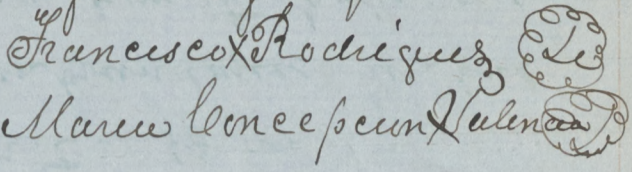 Francisco X Rodriguez Ls
Maria Concepcion X Valencia